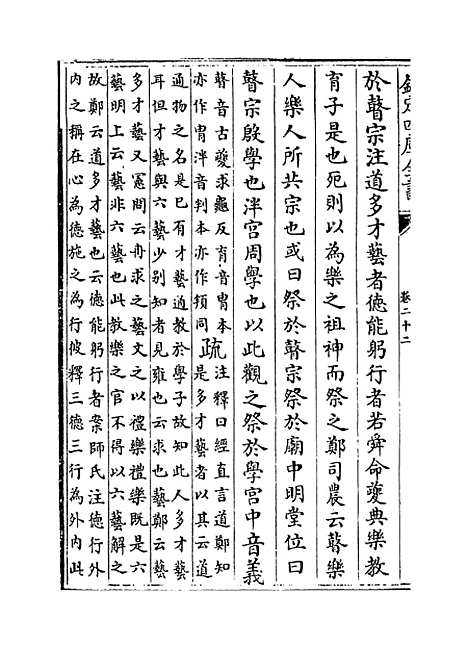 欽定四庫全書
卷二十二
於瞽宗注道多才藝者德能躬行者若舜命夔典樂教
育子是也死則以為樂之祖神而祭之鄭司農云瞽樂
人樂人所共宗也或曰祭於瞽宗祭於廟中明堂位曰
瞽宗殷學也泮宮周學也以此觀之祭於學宮中音義
瞽音古夔求龜反育音胄本
亦作胄泮音判本亦作頖同疏
注釋曰經直言道鄭知
是多才藝者以其云道
通物之名是已有才藝道教於學子故知此人多才藝
耳但才藝與六藝少別知者見雍也云求也藝鄭云藝
多才藝又憲問云冉求之藝文之以禮樂禮樂既是六
藝明上云藝非六藝也此教樂之官不得以六藝解之
故鄭云道多才藝也云德能躬行者案師氏注德行外
內之稱在心為德施之為行彼釋三德三行為外內此